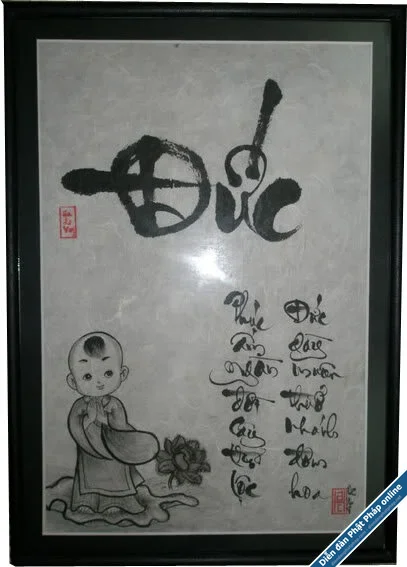 Đức
Phúc ấm ngàn đời cây lộc
Đức dày muôn thuở nhánh đơm hoa
Diễn đàn Phật Pháp online